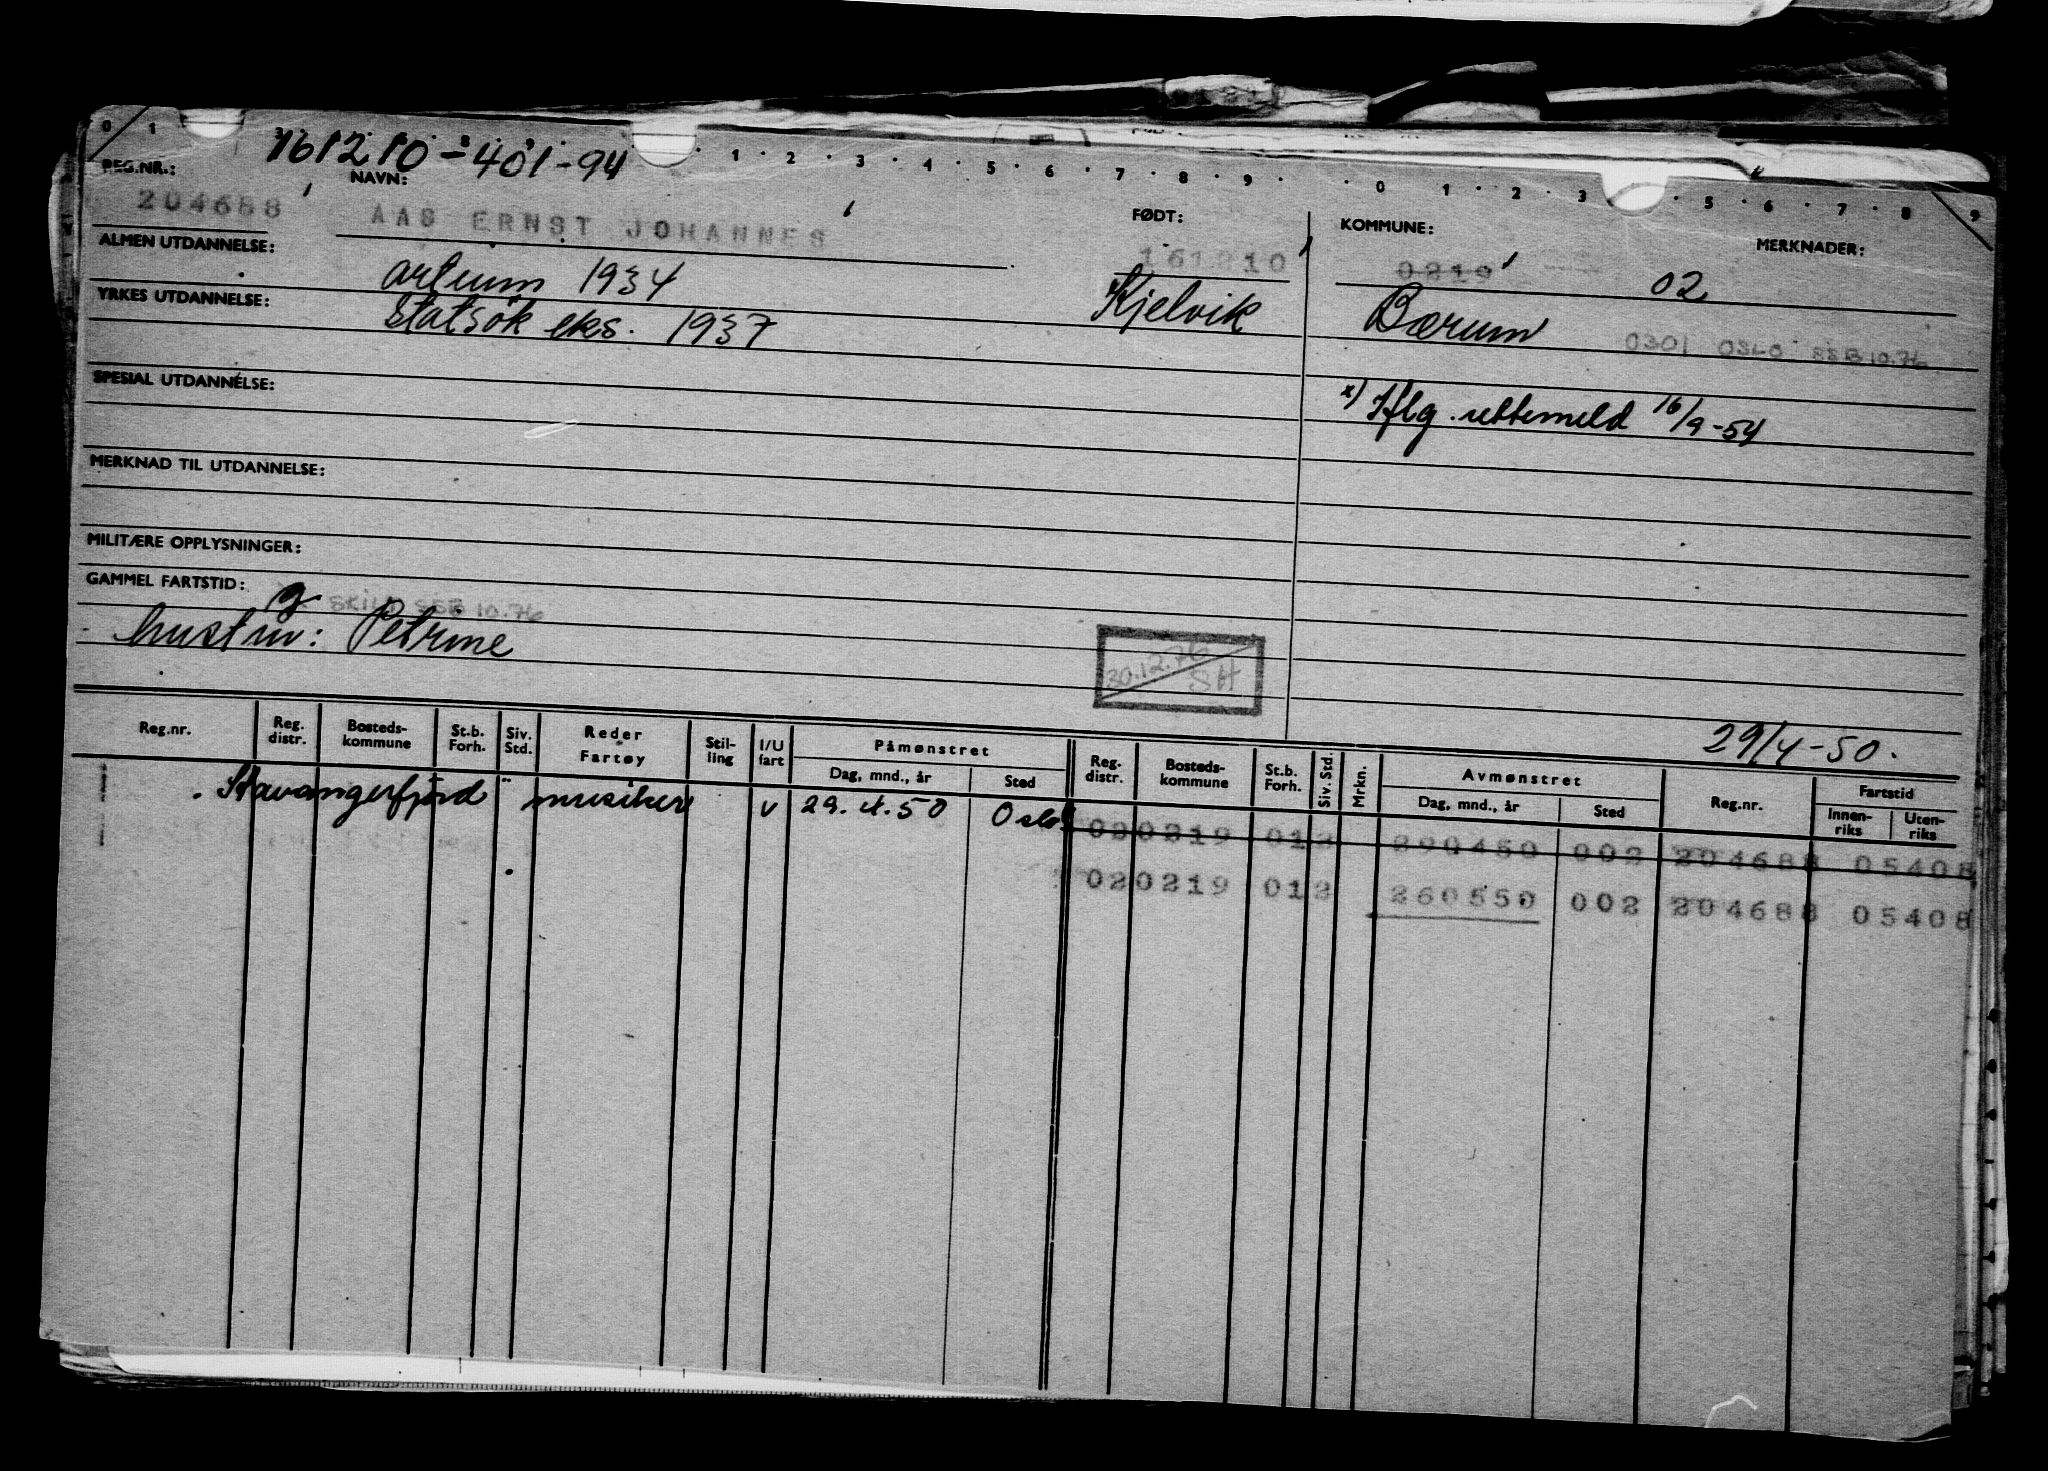 161210-401-94
0 1 1 2 3 4 5 6 7 8 9 0 1 2 3 5 6 7 8 9
REG.NR.: NAVN: FØDT: KOMMUNE: MERKNADER:
204688 AAS ERNST JOHANNES 161210 0219 02
ALMEN UTDANNELSE: artium 1934 Kjelvik Bærum 0301 OSLO SSB 10.76
YRKES UTDANNELSE: Statsøk eks. 1937
SPESIAL UTDANNELSE: x) Iflg. rettemeld 16/9-54
MERKNAD TIL UTDANNELSE:
MILITÆRE OPPLYSNINGER:
GAMMEL FARTSTID: g SKILT SSB 10.76
hustru: Petrine
30.12.76
SH
29/4-50.
Reg.nr. Reg. distr. Bosteds-kommune St.b. Forh. Siv. Std. Reder Fartøy Stil-ling I/U fart Påmønstret Dag, mnd., år Sted Reg. distr. Bosteds-kommune St.b. Forh. Siv. Std. Mrkn. Avmønstret Dag, mnd., år Sted Reg.nr. Fartstid Innen-riks Uten-riks
"Stavangerfjord" musiker v 29.4.50 Oslo 020219 012 290450 002 204688 05408
020219 012 260550 002 204688 05408